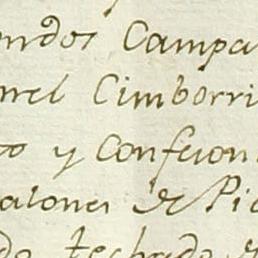 ondos Campa
nel Cimborri
to y Confecion
alones de Pie
do techado d